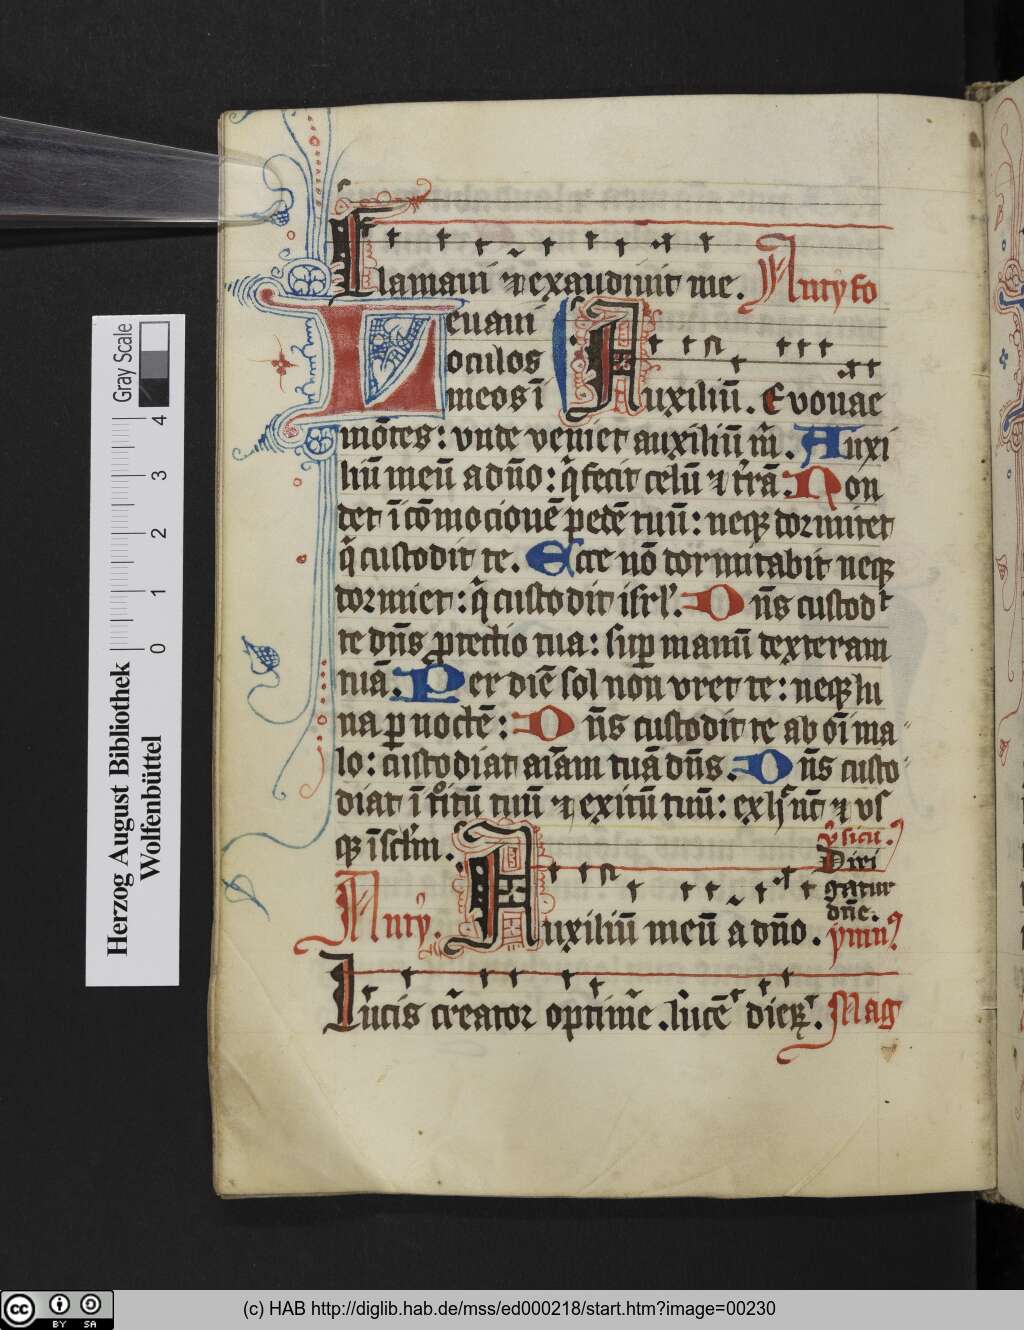 Clamaui et exaudiuit me. Antyfo
Leuaui
oculos
meos ī Auxiliū. Euouae
mōtes: vnde veniet auxiliū m̄. Auxi
liū meū a dño: q̄ fecit celū ⁊ t̄rā. Non
det ī cōmocionē pedē tuū: neqȝ dormitet
q̄ custodit te. Ecce nō dormitabit neqȝ
dormiet: q̄ custodit isrl̄. Dñs custod
te dñs ꝓtectio tua: suꝑ manū dexteram
tuā. Per diē sol non vret te: neqȝ lu
na ꝑ noctē: Dñs custodit te ab oī ma
lo: custodiat aīam tuā dñs. Dñs custo
diat ītroitū tuū et exitū tuū: ex h̄ nūc et vs
qȝ ī sclm̄. v̄sicu.
Diri
gatur
dñe.
Anty. Auxiliū meū a dño. ymn9
Lucis creator optime. lucē dieꝝ. Mag
Herzog August Bibliothek
Wolfenbüttel
Gray Scale
0 1 2 3 4
cc BY SA
(c) HAB http://diglib.hab.de/mss/ed000218/start.htm?image=00230